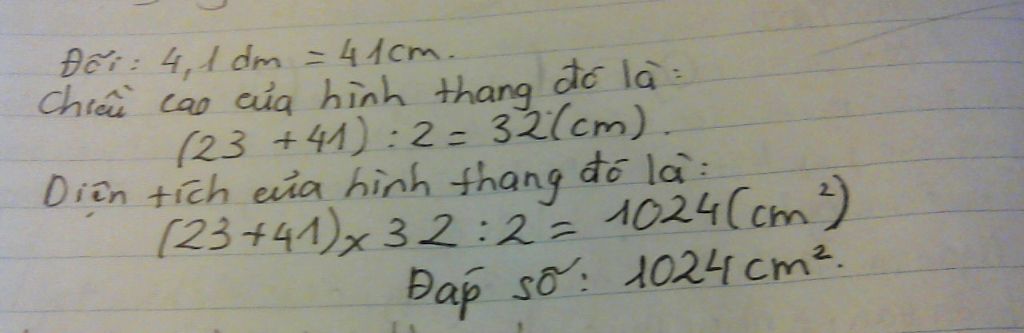 Đổi: 4,1 dm = 41cm.
Chiều cao của hình thang đó là:
(23 + 41) : 2 = 32 (cm).
Diện tích của hình thang đó là:
(23+41) x 32 : 2 = 1024 (cm²)
Đáp số: 1024 cm².